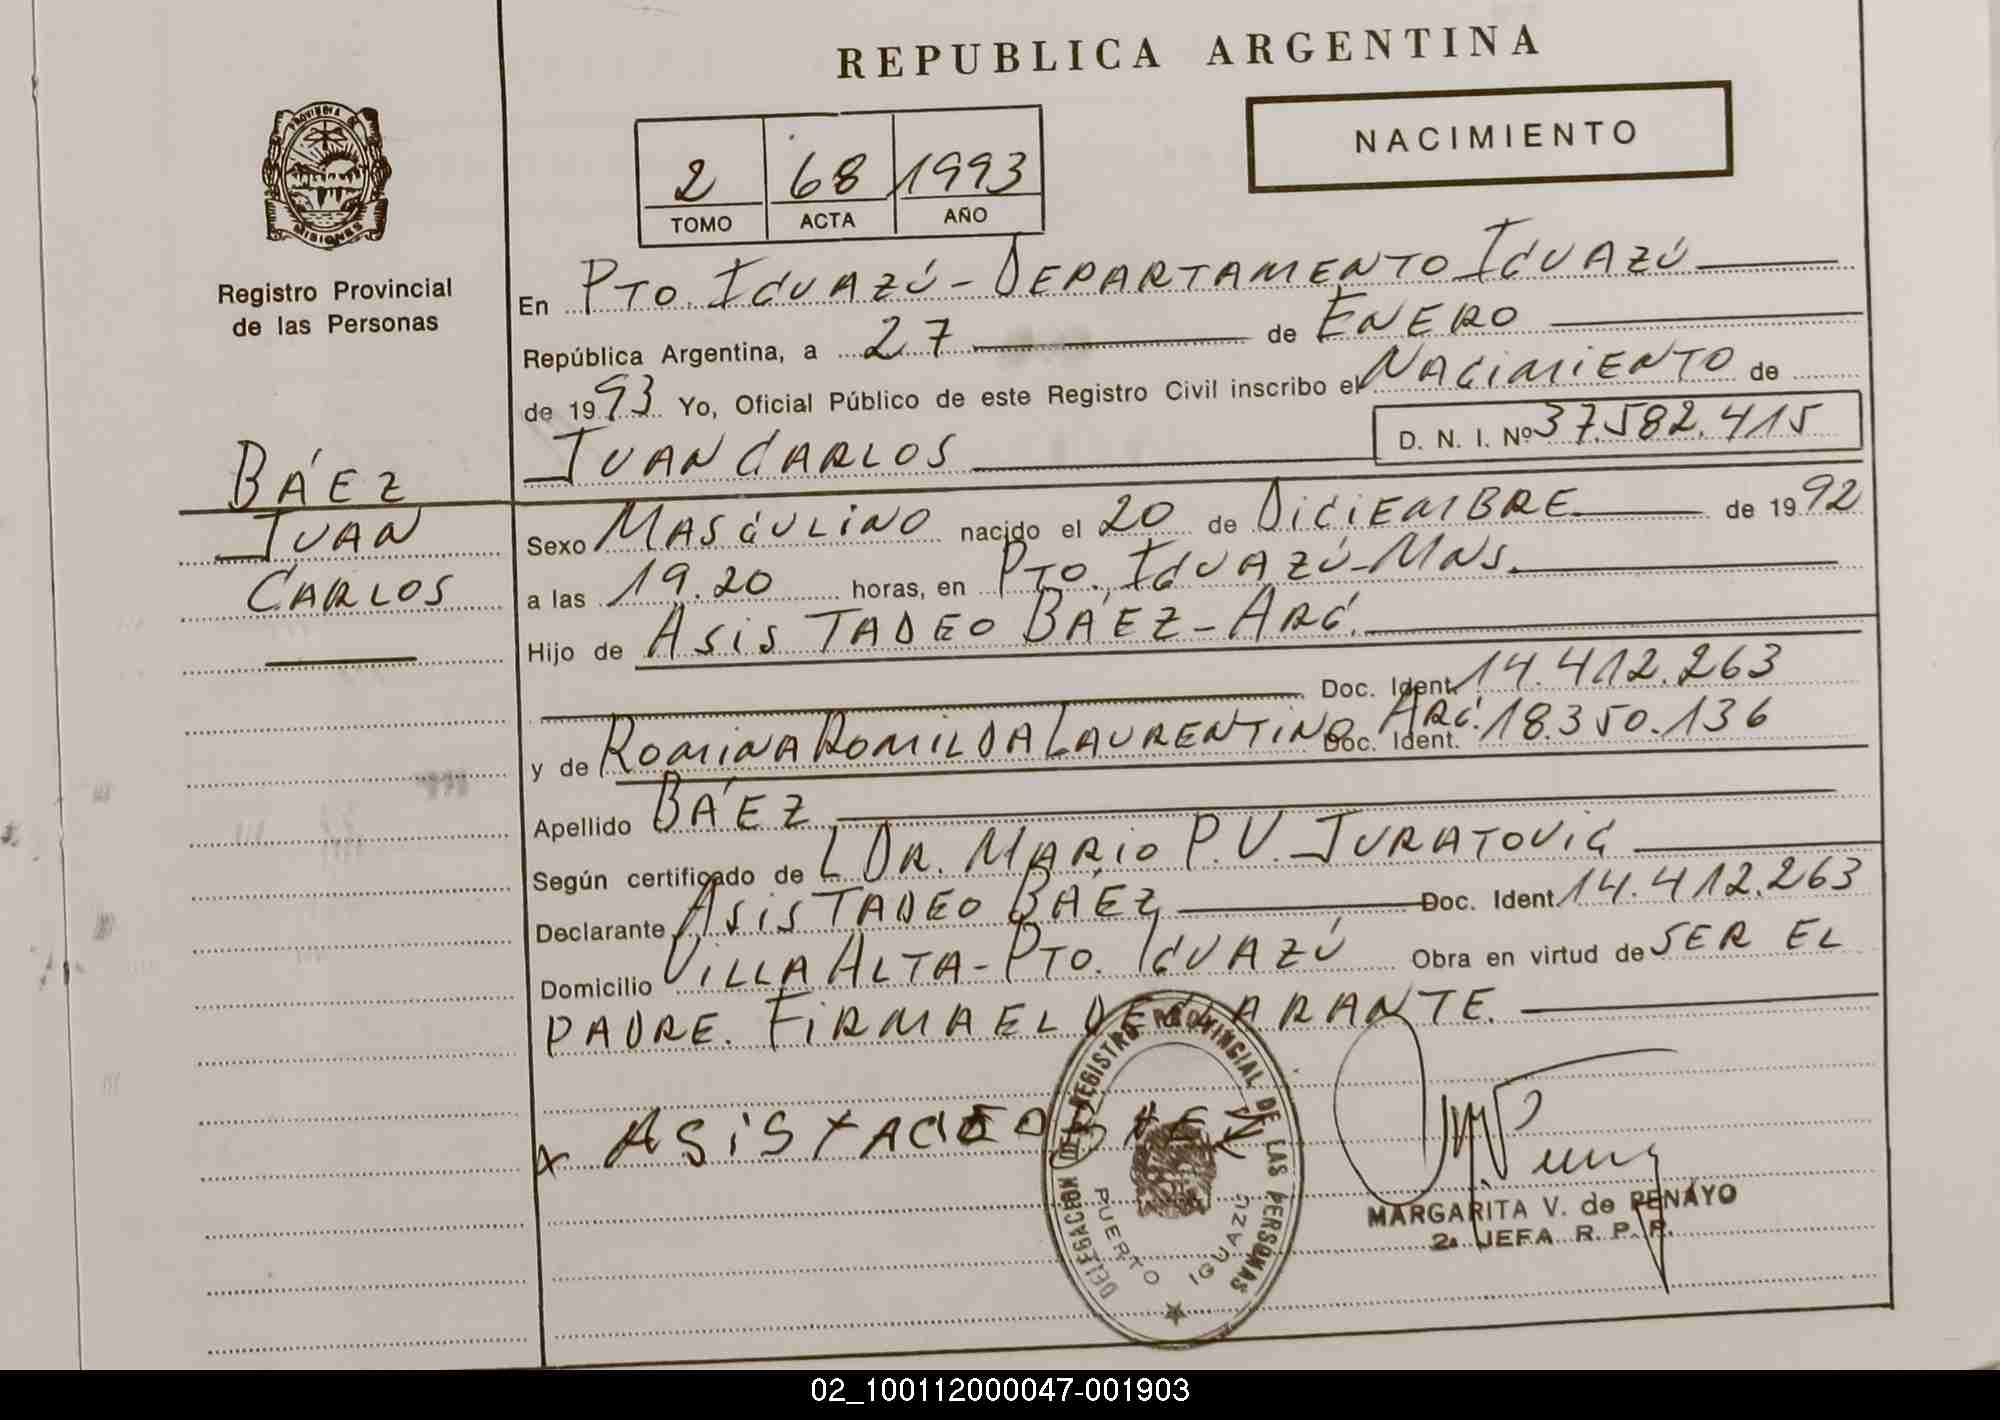 REPUBLICA ARGENTINA
PROVINCIA DE
MISIONES
Registro Provincial
de las Personas
2 68 1993
TOMO ACTA AÑO
NACIMIENTO
En Pto. Iguazú - Departamento Iguazú
República Argentina, a 27 de Enero
de 1993 Yo, Oficial Público de este Registro Civil inscribo el Nacimiento de
Juan Carlos D. N. I. Nº 37.582.415
Báez
Juan
Carlos
Sexo Masculino nacido el 20 de Diciembre de 1992
a las 19.20 horas, en Pto. Iguazú - Mns.
Hijo de Asis Tadeo Báez - Arg.
Doc. Ident. 14.412.263
y de Romina Romilda Laurentino Arg. Doc. Ident. 18.350.136
Apellido Báez
Según certificado de L Dr. Mario P. V. Juratovic
Declarante Asis Tadeo Báez Doc. Ident. 14.412.263
Domicilio Villa Alta - Pto. Iguazú Obra en virtud de ser el
padre. Firma el declarante.
x Asis tadeo Baez
DELEGACION DEL REGISTRO PROVINCIAL DE LAS PERSONAS
PUERTO IGUAZÚ
MARGARITA V. de PENAYO
2a JEFA R. P. P.
02_100112000047-001903